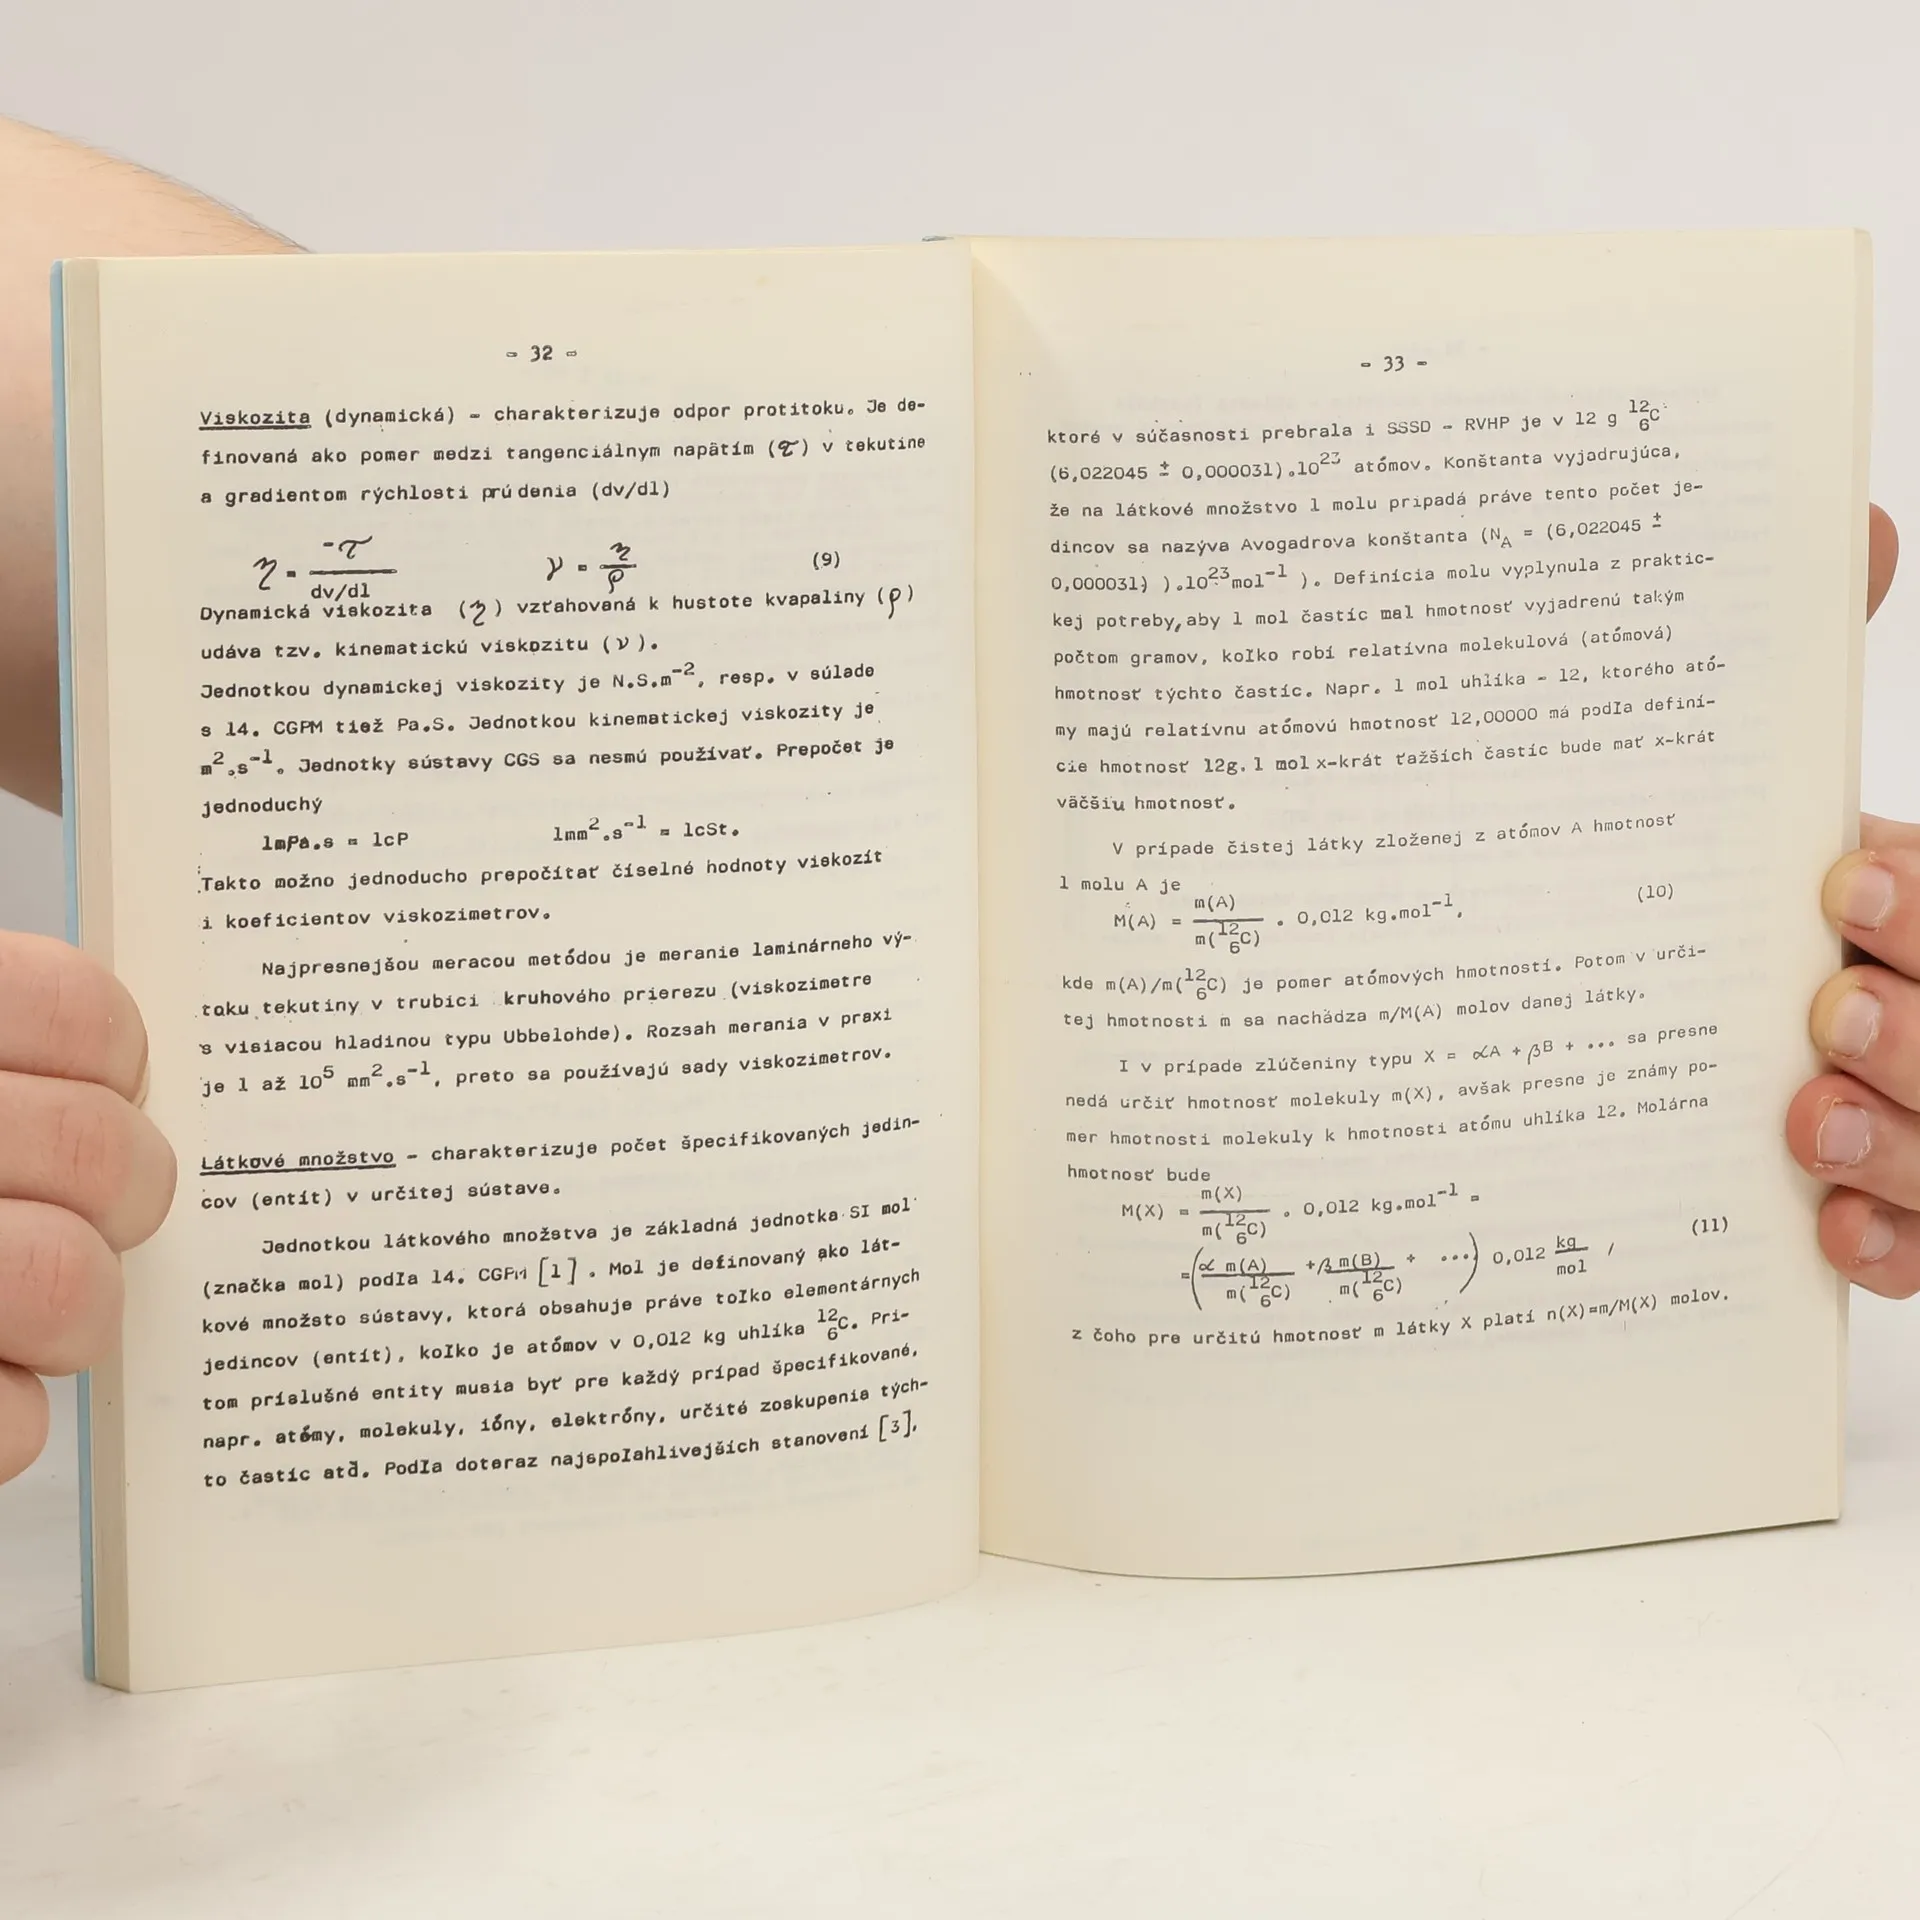 - 32 -
Viskozita (dynamická) - charakterizuje odpor protitoku. Je de-
finovaná ako pomer medzi tangenciálnym napätím (τ) v tekutine
a gradientom rýchlosti prúdenia (dv/dl)
η = -τ / dv/dl    ν = η / ρ    (9)
Dynamická viskozita (η) vzťahovaná k hustote kvapaliny (ρ)
udáva tzv. kinematickú viskozitu (ν).
Jednotkou dynamickej viskozity je N.S.m⁻², resp. v súlade
s 14. CGPM tiež Pa.S. Jednotkou kinematickej viskozity je
m².s⁻¹. Jednotky sústavy CGS sa nesmú používať. Prepočet je
jednoduchý
1mPa.s = 1cP    1mm².s⁻¹ = 1cSt.
Takto možno jednoducho prepočítať číselné hodnoty viskozít
i koeficientov viskozimetrov.
Najpresnejšou meracou metódou je meranie laminárneho vý-
toku tekutiny v trubici kruhového prierezu (viskozimetre
s visiacou hladinou typu Ubbelohde). Rozsah merania v praxi
je 1 až 10⁵ mm².s⁻¹, preto sa používajú sady viskozimetrov.
Látkové množstvo - charakterizuje počet špecifikovaných jedin-
cov (entít) v určitej sústave.
Jednotkou látkového množstva je základná jednotka SI mol
(značka mol) podľa 14. CGPM [1]. Mol je definovaný ako lát-
kové množsto sústavy, ktorá obsahuje práve toľko elementárnych
jedincov (entít), koľko je atómov v 0,012 kg uhlíka ¹²₆C. Pri-
tom príslušné entity musia byť pre každý prípad špecifikované,
napr. atómy, molekuly, ióny, elektróny, určité zoskupenia tých-
to častíc atď. Podľa doteraz najspoľahlivejších stanovení [3],
- 33 -
ktoré v súčasnosti prebrala i SSSD - RVHP je v 12 g ¹²₆C
(6,022045 ± 0,000031).10²³ atómov. Konštanta vyjadrujúca,
že na látkové množstvo 1 molu pripadá práve tento počet je-
dincov sa nazýva Avogadrova konštanta (N_A = (6,022045 ±
0,000031) ).10²³mol⁻¹ ). Definícia molu vyplynula z praktic-
kej potreby, aby 1 mol častíc mal hmotnosť vyjadrenú takým
počtom gramov, koľko robí relatívna molekulová (atómová)
hmotnosť týchto častíc. Napr. 1 mol uhlíka - 12, ktorého ató-
my majú relatívnu atómovú hmotnosť 12,00000 má podľa definí-
cie hmotnosť 12g. 1 mol x-krát ťažších častíc bude mať x-krát
väčšiu hmotnosť.
V prípade čistej látky zloženej z atómov A hmotnosť
1 molu A je
M(A) = m(A) / m(¹²₆C) . 0,012 kg.mol⁻¹,    (10)
kde m(A)/m(¹²₆C) je pomer atómových hmotností. Potom v urči-
tej hmotnosti m sa nachádza m/M(A) molov danej látky.
I v prípade zlúčeniny typu X = αA + βB + ... sa presne
nedá určiť hmotnosť molekuly m(X), avšak presne je známy po-
mer hmotnosti molekuly k hmotnosti atómu uhlíka 12. Molárna
hmotnosť bude
M(X) = m(X) / m(¹²₆C) . 0,012 kg.mol⁻¹ =
= (α m(A) / m(¹²₆C) + β m(B) / m(¹²₆C) + ...) 0,012 kg / mol ,    (11)
z čoho pre určitú hmotnosť m látky X platí n(X)=m/M(X) molov.